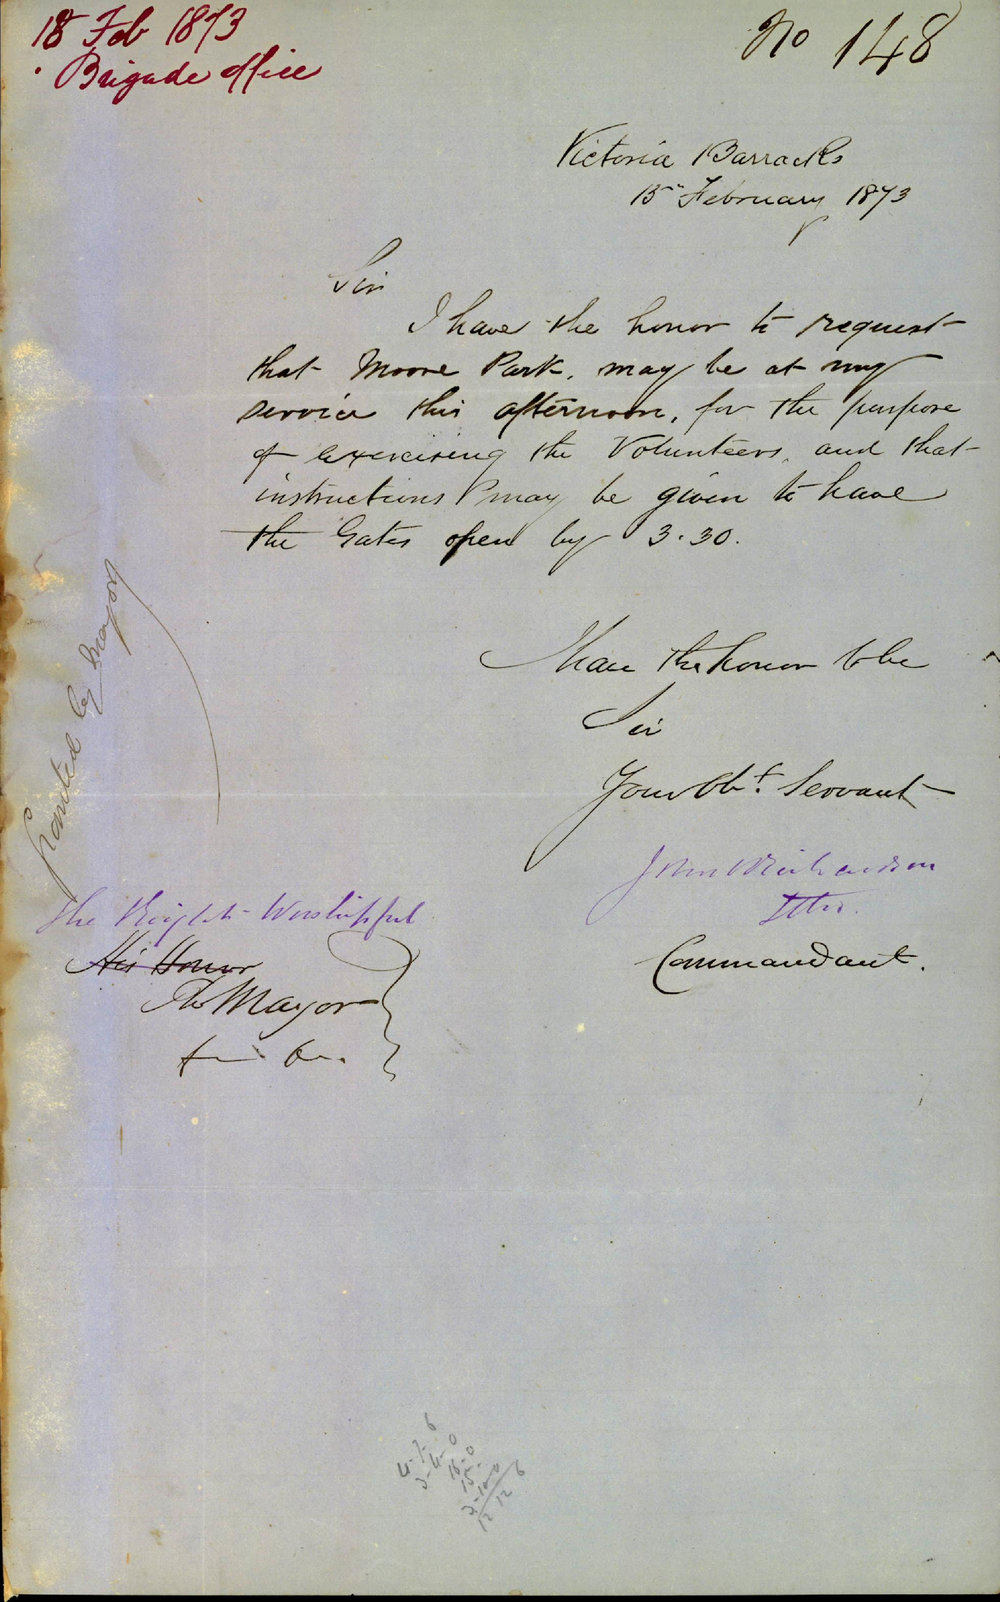 18 Feb 1873
Brigade office
No 148
Victoria Barracks
15th February 1873
Sir
I have the honor to request
that Moore Park, may be at my
service this afternoon, for the purpose
of exercising the Volunteers, and that
instructions may be given to have
the Gates open by 3.30.
I have the honor to be
Sir
Your Obt. Servant
John Richardson
Commandant.
granted by Mayor
The Right Worshipful
His Honor
The Mayor
4-7-6
3-4-0
16-0
15-
2-10-0
12 12 6